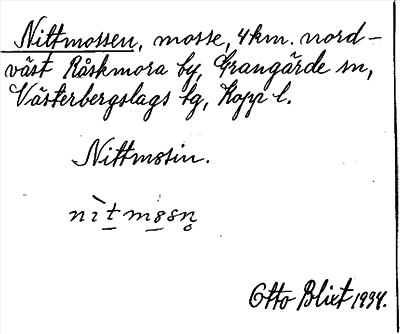 Nittmossen, mosse, 4 km. nord-
väst Råskmora by, Grangärde sn,
Västerbergslags tg, Kopp l.
Nittmossin.
nìtmossn̥
Otto Blixt 1934.